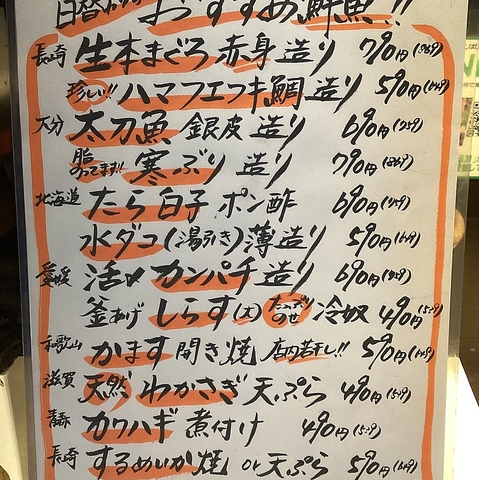 日替わり おすすめ鮮魚!!
長崎 生本まぐろ 赤身 造り 790円(869)
珍しい!! ハマフエフキ鯛 造り 590円(649)
大分 太刀魚 銀皮 造り 690円(759)
脂のってます!! 寒ぶり 造り 790円(869)
北海道 たら白子 ポン酢 690円(759)
水ダコ(湯引き)薄造り 590円(649)
愛媛 活〆カンパチ造り 690円(759)
釜あげ しらす(大) たっぷりのせ 冷奴 490円(539)
和歌山 かます開き焼 店内若干し!! 590円(649)
滋賀 天然 わかさぎ天ぷら 490円(539)
青森 カワハギ 煮付け 490円(539)
長崎 するめいか焼 or 天ぷら 590円(649)